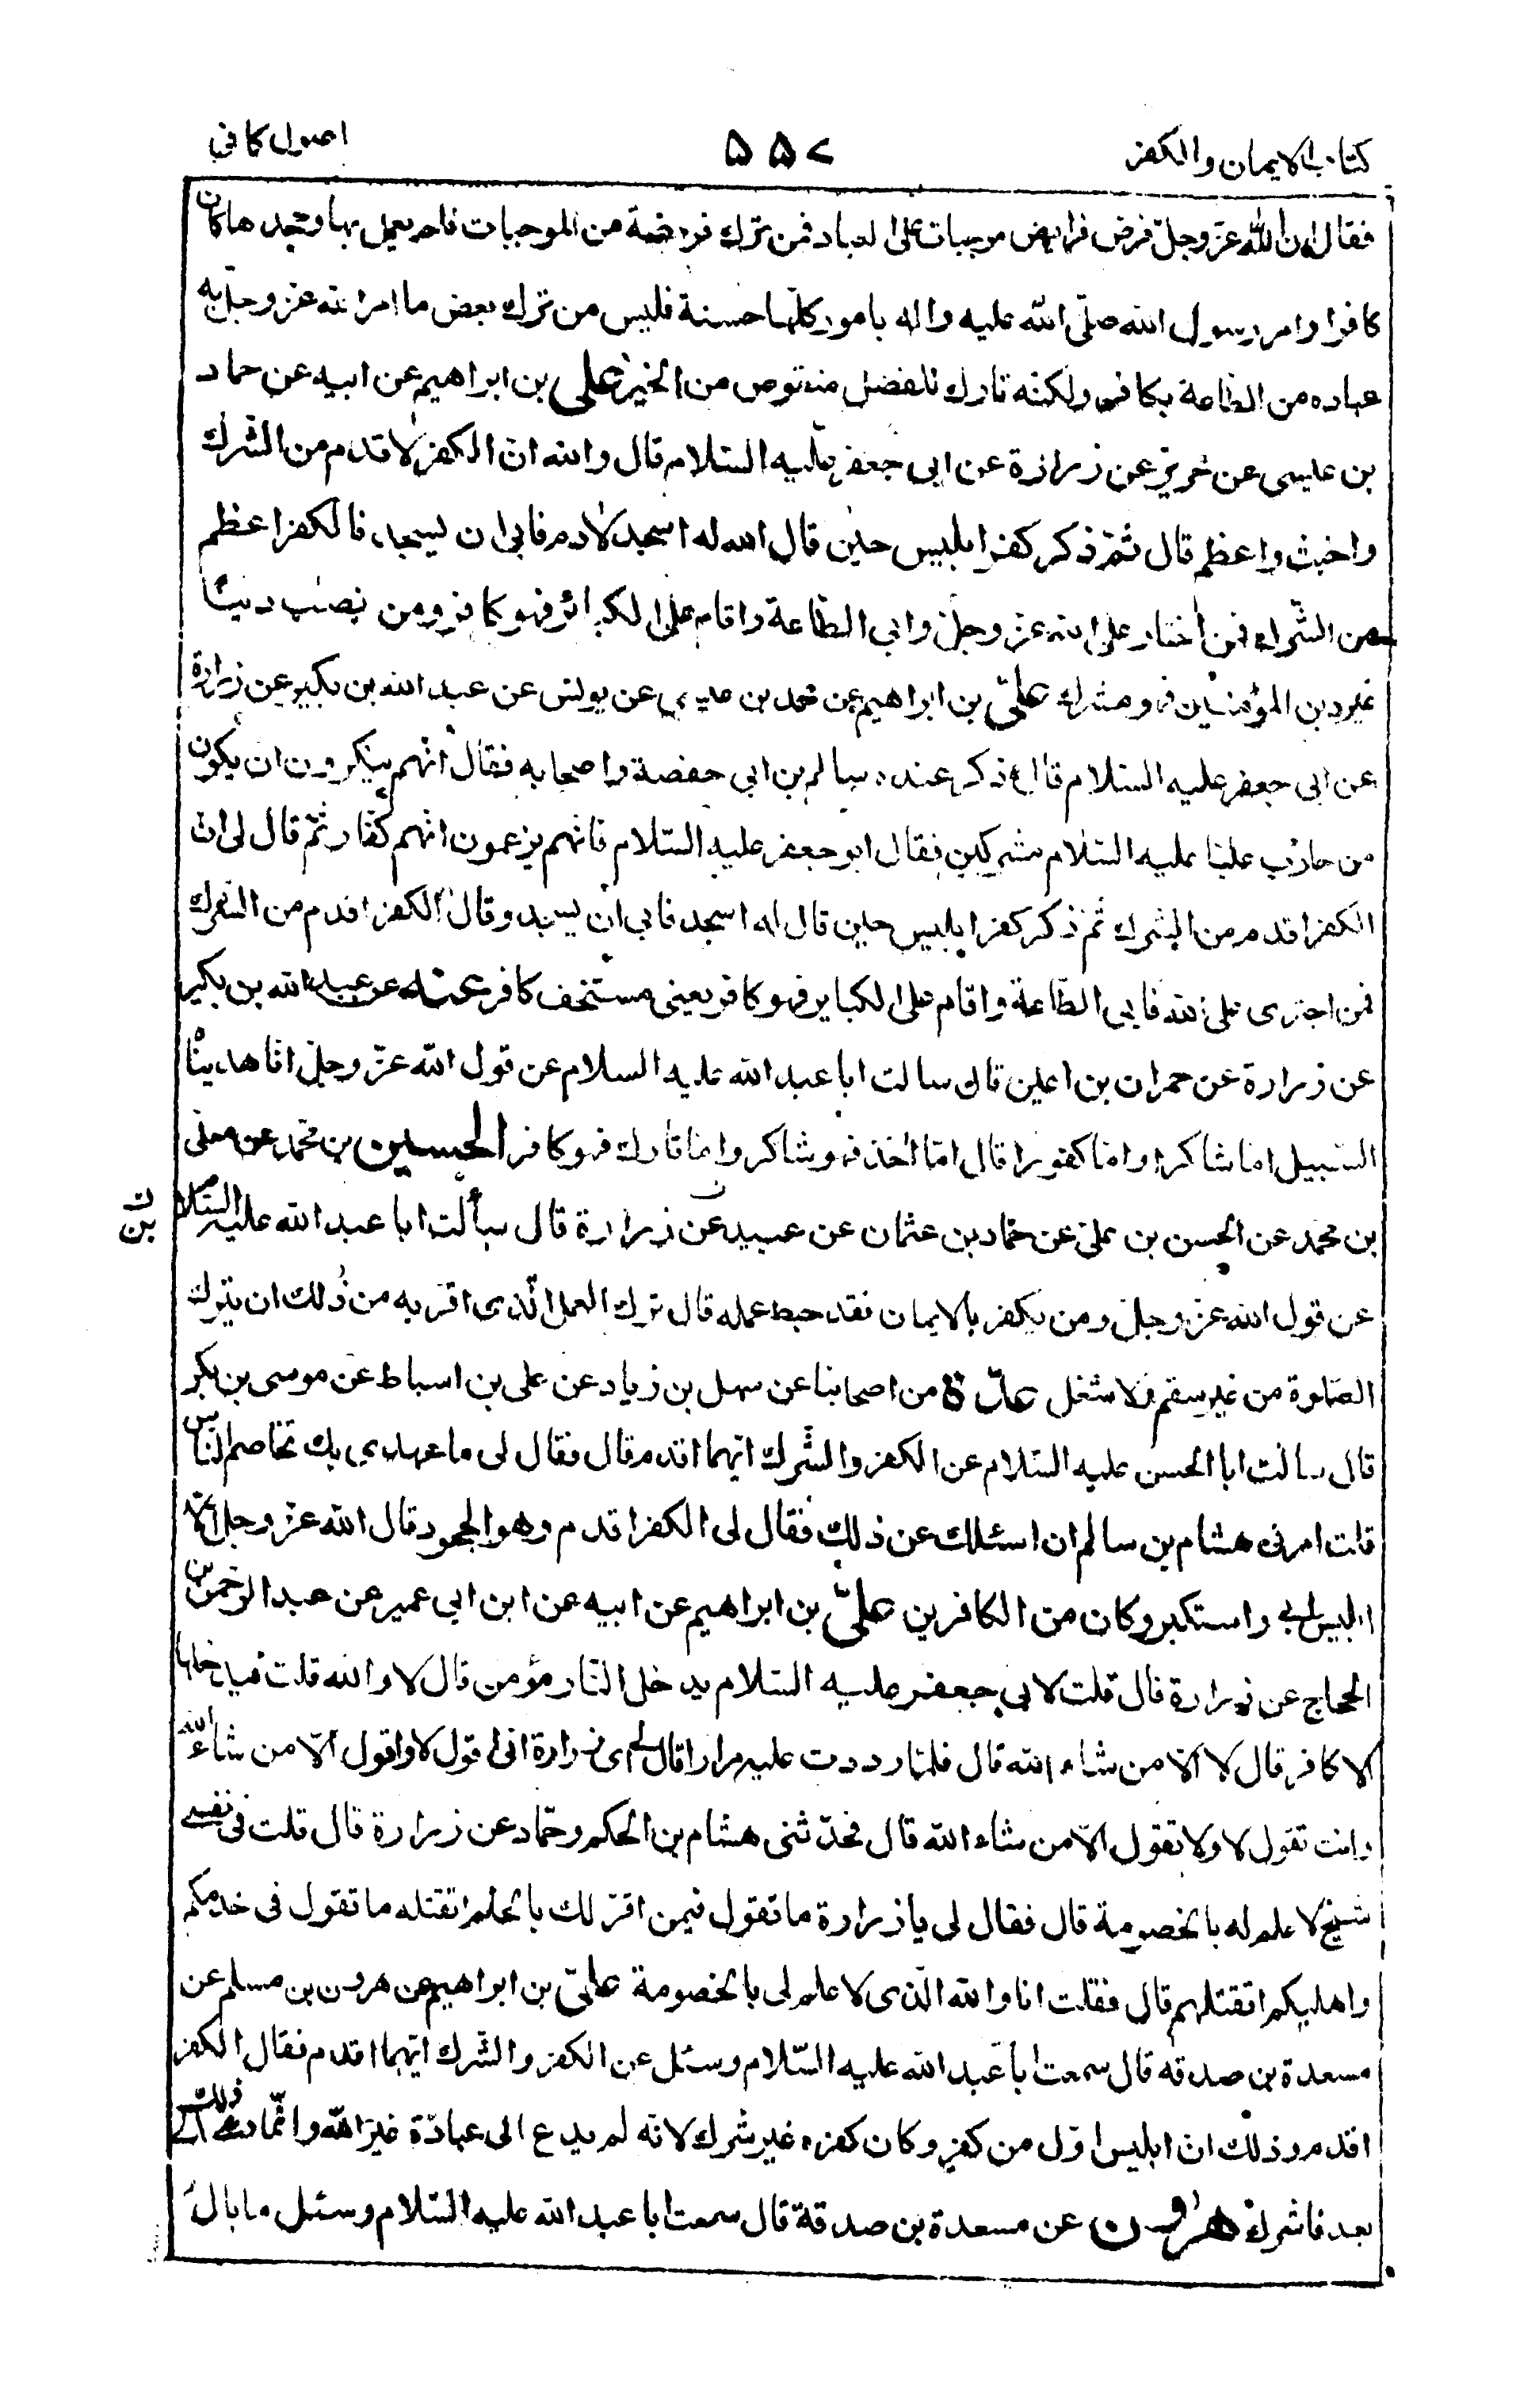 كتاب الايمان والكفر
۵۵۷
اصول كافي
فقال ان الله عز وجل فرض فرايض موجبات على العباد فمن ترك فريضة من الموجبات فلم يعمل بها وجحدها كان
كافرا وامر رسول الله صلى الله عليه واله بامور كلها حسنة فليس من ترك بعض ما امر الله عز وجل به
عباده من الطاعة بكافر ولكنه تارك للفضل منقوص من الخير علي بن ابراهيم عن ابيه عن حماد
بن عيسى عن حريز عن زرارة عن ابى جعفر عليه السلام قال والله ان الكفر لاقدم من الشرك
واخبث واعظم قال ثم ذكر كفر ابليس حين قال الله له اسجد لادم فابى ان يسجد فالكفر اعظم
من الشرك فمن اختار على الله عز وجل وابى الطاعة واقام على الكبائر فهو كافر ومن نصب دينا
غير دين المؤمنين فهو مشرك علي بن ابراهيم عن محمد بن عيسى عن يونس عن عبد الله بن بكير عن زرارة
عن ابى جعفر عليه السلام قال ذكر عنده سالم بن ابى حفصة واصحابه فقال انهم ينكرون ان يكون
من حارب عليا عليه السلام مشركين فقال ابو جعفر عليه السلام فانهم يزعمون انهم كفار ثم قال لى ان
الكفر اقدم من الشرك ثم ذكر كفر ابليس حين قال له اسجد فابى ان يسجد وقال الكفر اقدم من الشرك
فمن اجترى على الله فابى الطاعة واقام على الكباير فهو كافر يعنى مستخف كافر عنه عن عبد الله بن بكير
عن زرارة عن حمران بن اعين قال سالت ابا عبد الله عليه السلام عن قول الله عز وجل انا هديناه
السبيل اما شاكرا واما كفورا قال اما اخذ فهو شاكر واما تارك فهو كافر الحسين بن محمد عن معلى
بن محمد عن الحسن بن على عن حماد بن عثمان عن عبيد عن زرارة قال سألت ابا عبد الله عليه السلام
بن
عن قول الله عز وجل ومن يكفر بالايمان فقد حبط عمله قال ترك العمل الذى اقر به من ذلك ان يترك
الصلوة من غير سقم ولا شغل عدة من اصحابنا عن سهل بن زياد عن على بن اسباط عن موسى بن بكر
قال سالت ابا الحسن عليه السلام عن الكفر والشرك ايهما اقدم قال فقال لى ما عهدى بك تخاصم الناس
قلت امرنى هشام بن سالم ان اسئلك عن ذلك فقال لى الكفر اقدم وهو الجحود قال الله عز وجل الا
ابليس ابى واستكبر وكان من الكافرين علي بن ابراهيم عن ابيه عن ابن ابى عمير عن عبد الرحمن بن
الحجاج عن زرارة قال قلت لابى جعفر عليه السلام يدخل النار مؤمن قال لا والله قلت فما يدخلها
الا كافر قال لا الا من شاء الله قال فلما رددت عليه مرارا قال لى اى زرارة انى اقول لا واقول الا من شاء الله
وانت تقول لا ولا تقول الا من شاء الله قال فحدثنى هشام بن الحكم وحماد عن زرارة قال قلت فى نفسى
شيخ لا علم له بالخصومة قال فقال لى يا زرارة ما تقول فيمن اقر لك بالحكم اتقتله ما تقول فى خدمكم
واهليكم اتقتلهم قال فقلت انا والله الذى لا علم لى بالخصومة علي بن ابراهيم عن هرون بن مسلم عن
مسعدة بن صدقه قال سمعت ابا عبد الله عليه السلام وسئل عن الكفر والشرك ايهما اقدم فقال الكفر
اقدم وذلك ان ابليس اول من كفر وكان كفره غير شرك لانه لم يدع الى عبادة غير الله وانما دعى الى ذلك
بعد فاشرك هرون عن مسعدة بن صدقة قال سمعت ابا عبد الله عليه السلام وسئل ما بال